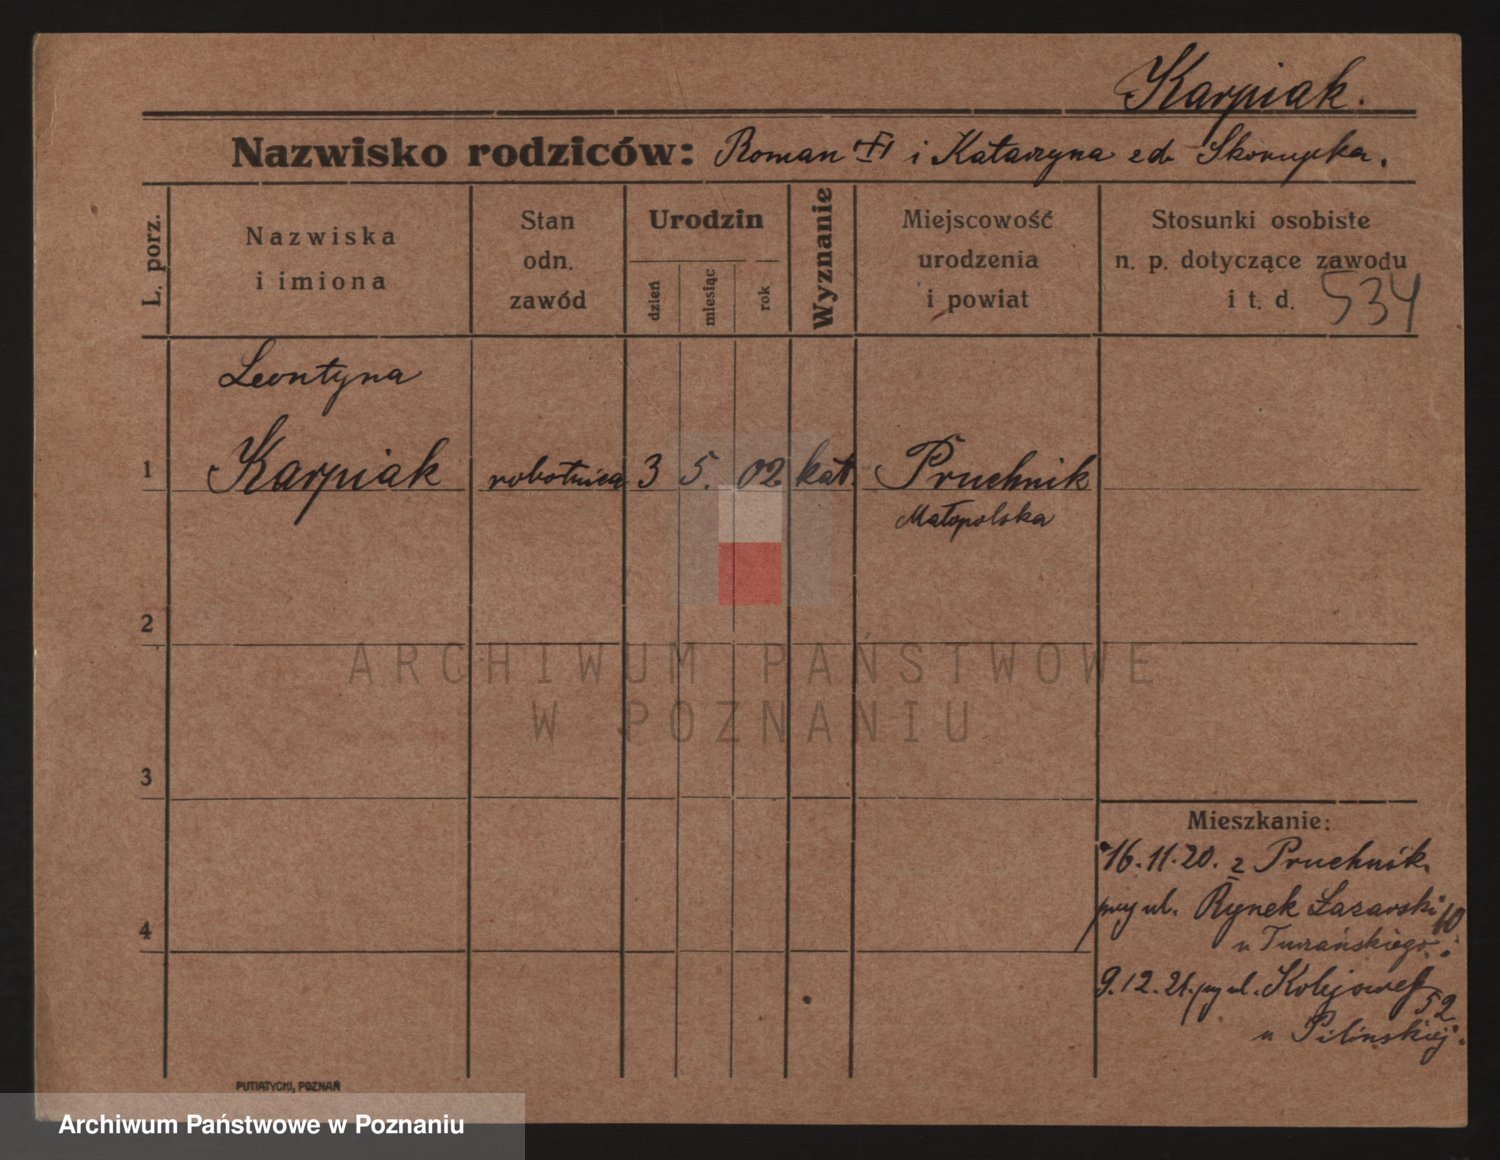 Karpiak.
Nazwisko rodziców: Roman i Katarzyna zd. Skorupka.
L. porz.
Nazwiska
i imiona
Stan
odn.
zawód
Urodzin
dzień
miesiąc
rok
Wyznanie
Miejscowość
urodzenia
i powiat
Stosunki osobiste
n. p. dotyczące zawodu
i t. d. 534
Leontyna
1 Karpiak robotnica 3 5. 02. kat. Pruchnik
Małopolska
2
ARCHIWUM PAŃSTWOWE
W POZNANIU
3
Mieszkanie:
16.11.20. z Pruchnik.
przy ul. Rynek Łazarski 10
4
u
9.12.21. przy ul. Kolejowej 52
u Pilińskiej.
PUTIATYCKI, POZNAŃ
Archiwum Państwowe w Poznaniu